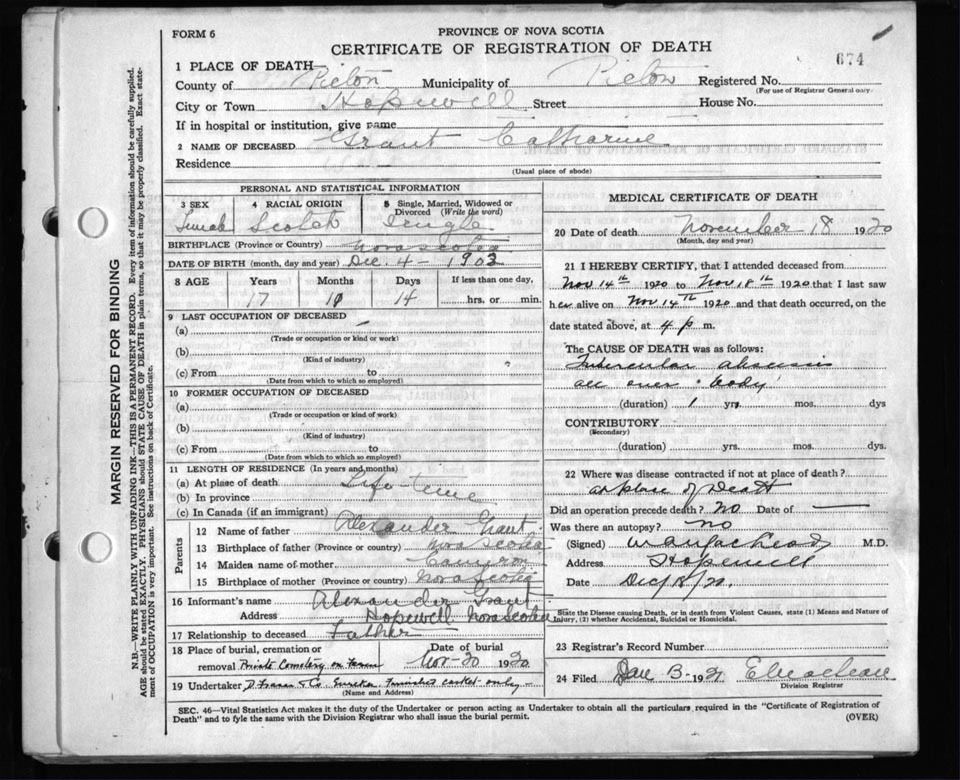 FORM 6
PROVINCE OF NOVA SCOTIA
CERTIFICATE OF REGISTRATION OF DEATH
674
1 PLACE OF DEATH—
County of Pictou Municipality of Pictou Registered No.
(For use of Registrar General only.
City or Town Hopewell Street House No.
If in hospital or institution, give name
2 NAME OF DECEASED Grant Catharine
Residence
(Usual place of abode)
PERSONAL AND STATISTICAL INFORMATION
3 SEX Female
4 RACIAL ORIGIN Scotch
5 Single, Married, Widowed or
Divorced (Write the word)
Single
BIRTHPLACE (Province or Country) Nova Scotia
DATE OF BIRTH (month, day and year) Dec. 4 - 1902
8 AGE Years Months Days If less than one day,
17 11 14 hrs. or min.
9 LAST OCCUPATION OF DECEASED
(a)
(Trade or occupation or kind or work)
(b)
(Kind of industry)
(c) From
(Date from which to which so employed)
10 FORMER OCCUPATION OF DECEASED
(a)
(Trade or occupation or kind of work)
(b)
(Kind of industry)
(c) From
(Date from which to which so employed)
11 LENGTH OF RESIDENCE (In years and months)
(a) At place of death Life-time
(b) In province
(c) In Canada (if an immigrant)
Parents
12 Name of father Alexander Grant
13 Birthplace of father (Province or country) Nova Scotia
14 Maiden name of mother Cameron
15 Birthplace of mother (Province or country) Nova Scotia
16 Informant's name Alexander Grant
Address Hopewell Nova Scotia
17 Relationship to deceased Father
18 Place of burial, cremation or
removal Private Cemetery on farm
Date of burial
Nov-20 1920
19 Undertaker D Fraser & Co. Eureka Furnished casket only
(Name and Address)
MEDICAL CERTIFICATE OF DEATH
20 Date of death November 18 1920
(Month, day and year)
21 I HEREBY CERTIFY, that I attended deceased from
Nov 14th 1920 to Nov 18th 1920 that I last saw
her alive on Nov 14th 1920 and that death occurred, on the
date stated above, at 4 p m.
The CAUSE OF DEATH was as follows:
Tubercular abscesses
all over body
(duration) 1 yrs. mos. dys
CONTRIBUTORY
(Secondary)
(duration) yrs. mos. dys.
22 Where was disease contracted if not at place of death?
at place of Death
Did an operation precede death? No Date of
Was there an autopsy? No
(Signed) M.D.
Address Hopewell
Date Dec/18/20.
State the Disease causing Death, or in death from Violent Causes, state (1) Means and Nature of
Injury, (2) whether Accidental, Suicidal or Homicidal.
23 Registrar's Record Number
24 Filed Jan 1921
Division Registrar
SEC. 46—Vital Statistics Act makes it the duty of the Undertaker or person acting as Undertaker to obtain all the particulars required in the "Certificate of Registration of
Death" and to fyle the same with the Division Registrar who shall issue the burial permit.
(OVER)
MARGIN RESERVED FOR BINDING
N.B.—WRITE PLAINLY WITH UNFADING INK—THIS IS A PERMANENT RECORD. Every item of information should be carefully supplied.
AGE should be stated EXACTLY. PHYSICIANS should STATE CAUSE OF DEATH in plain terms, so that it may be properly classified. Exact state-
ment of OCCUPATION is very important. See instructions on back of Certificate.